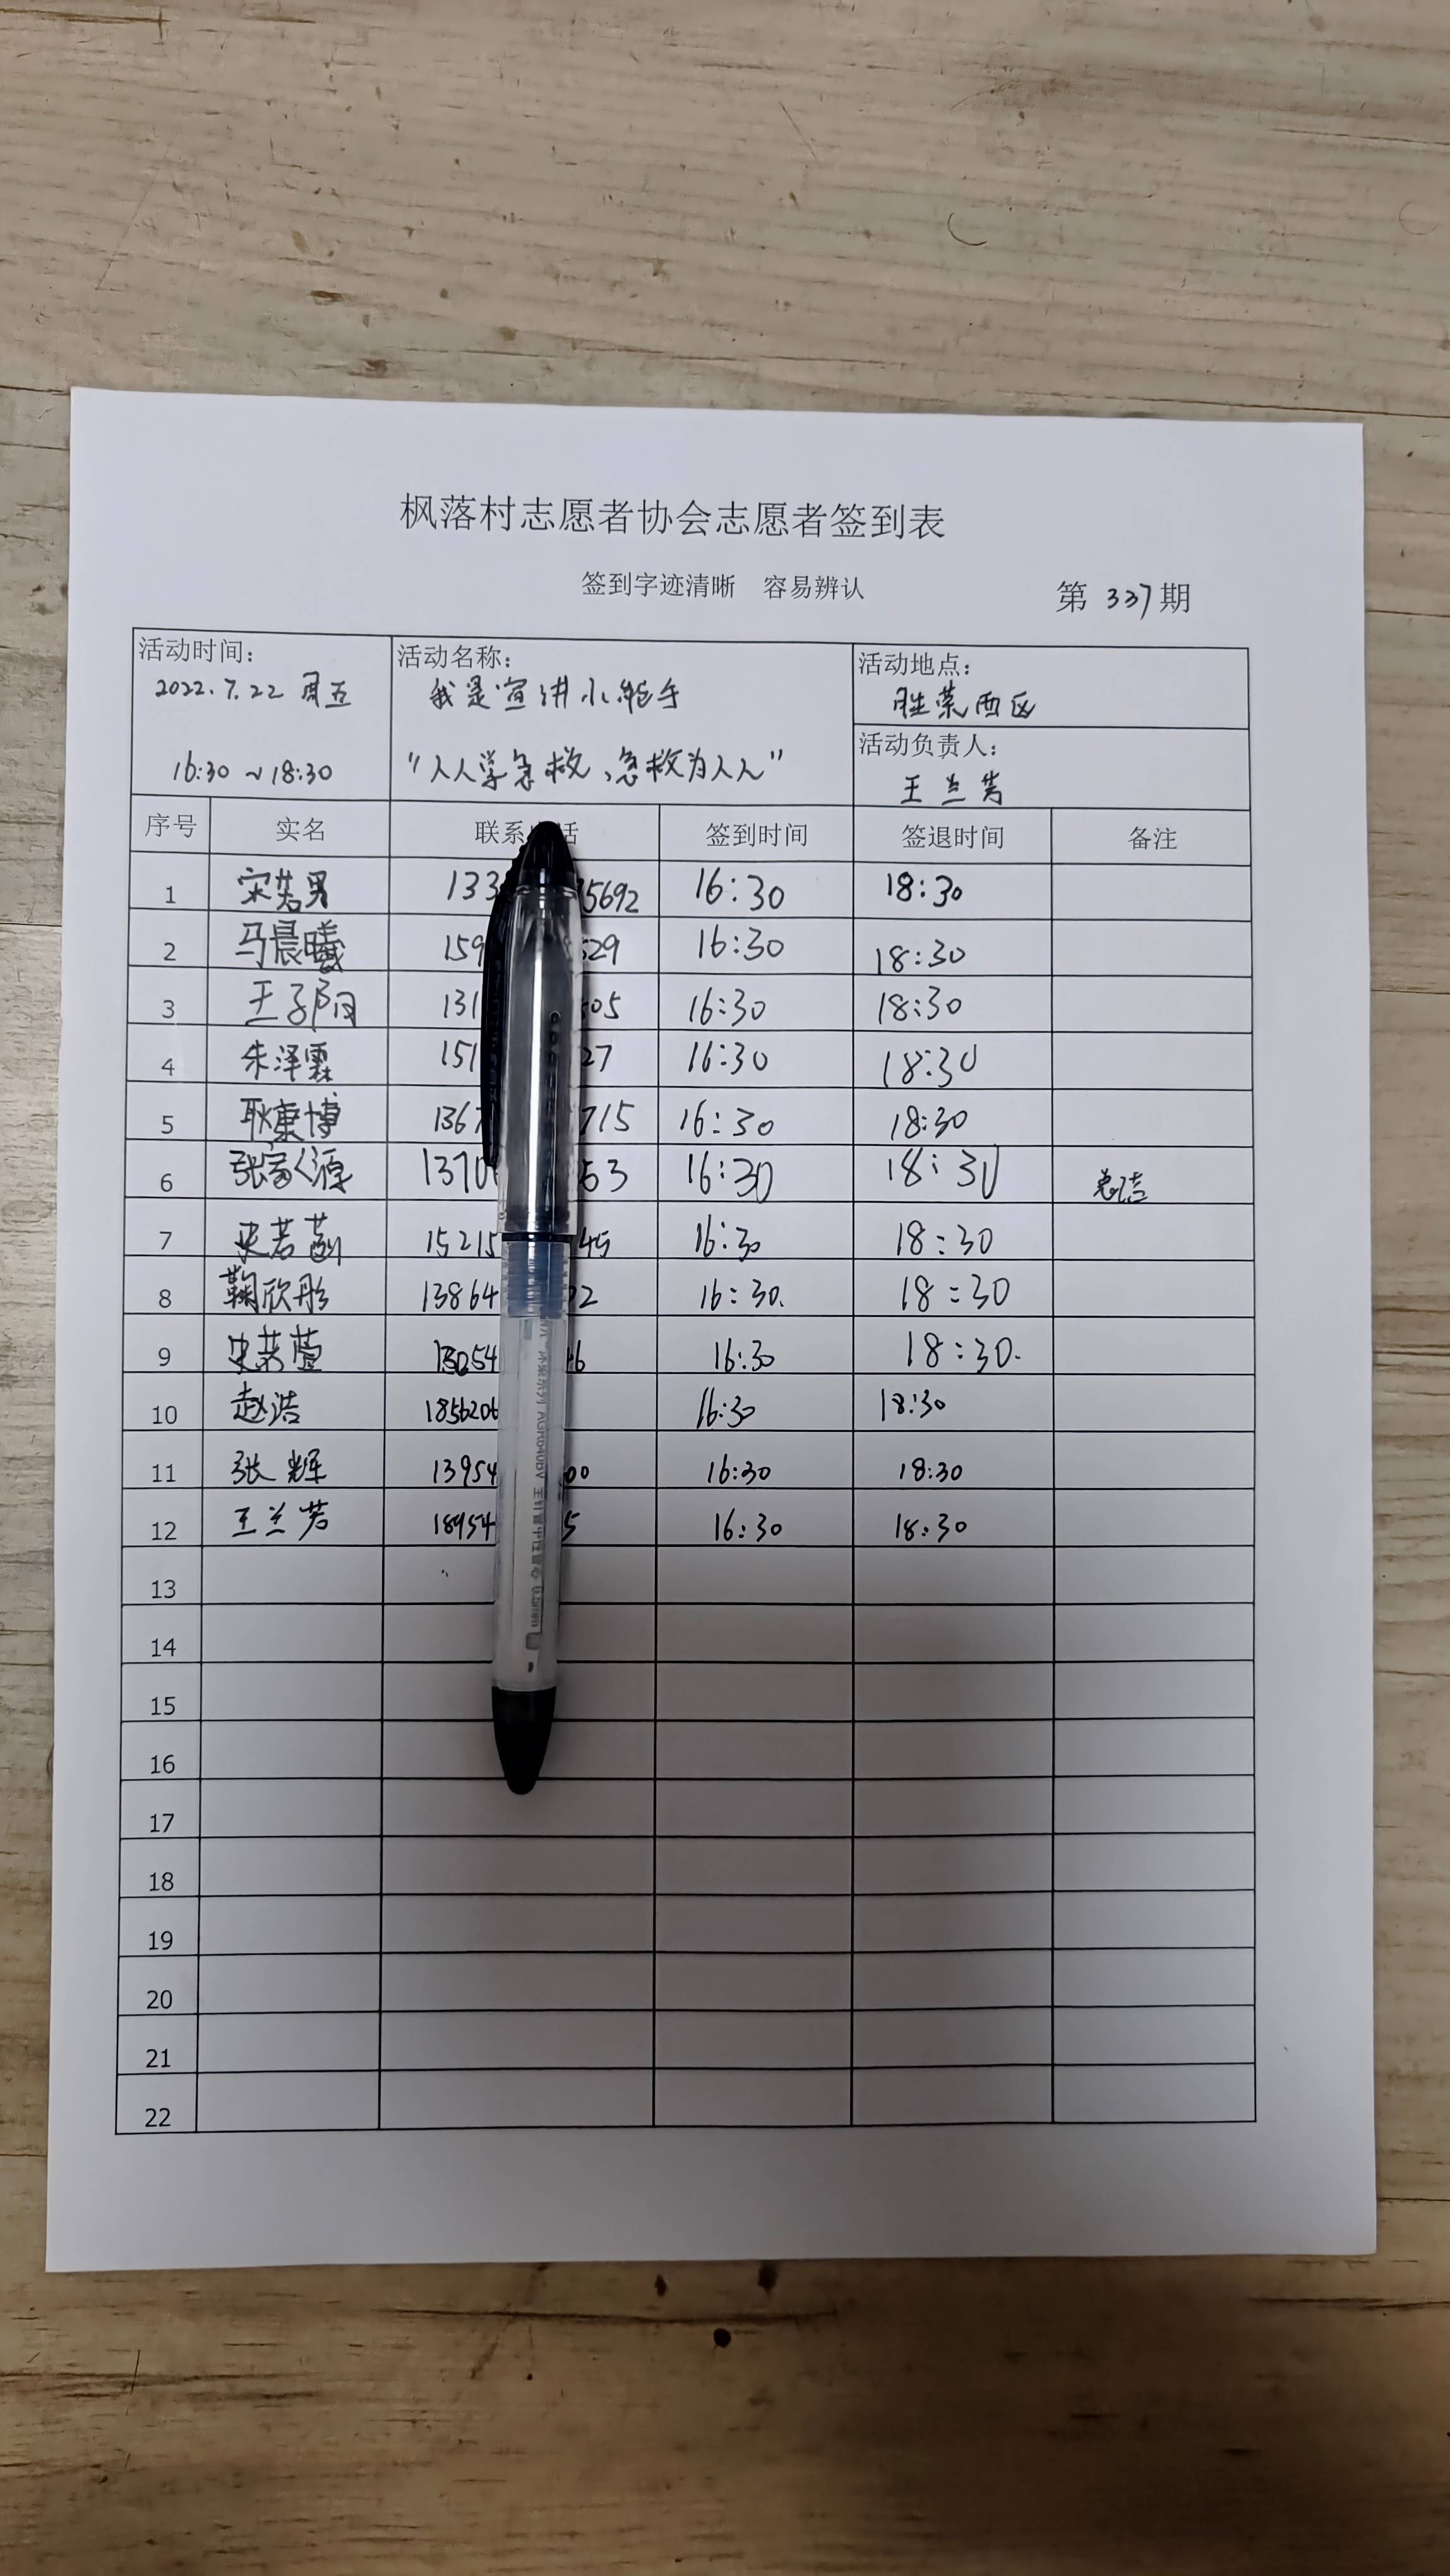 枫落村志愿者协会志愿者签到表
签到字迹清晰 容易辨认
第 337 期
活动时间: 活动名称: 活动地点:
2022.7.22 周五 我是宣讲小能手 胜荣西区
活动负责人:
16:30~18:30 “人人学急救,急救为人人” 王兰芳
序号 实名 联系 话 签到时间 签退时间 备注
1 宋若男 133 5692 16:30 18:30
2 马晨曦 159 529 16:30 18:30
3 王子阳 131 505 16:30 18:30
4 朱泽霖 151 27 16:30 18:30
5 耿康博 1367 715 16:30 18:30
6 张家源 1370 53 16:30 18:30
7 史若菡 15215 45 16:30 18:30
8 鞠欣彤 13864 02 16:30. 18:30
9 史若萱 13054 46 16:30 18:30.
10 赵浩 1856206 16:30 18:30
11 张辉 13954 00 16:30 18:30
12 王兰芳 18954 5 16:30 18:30
13
14
15
16
17
18
19
20
21
22